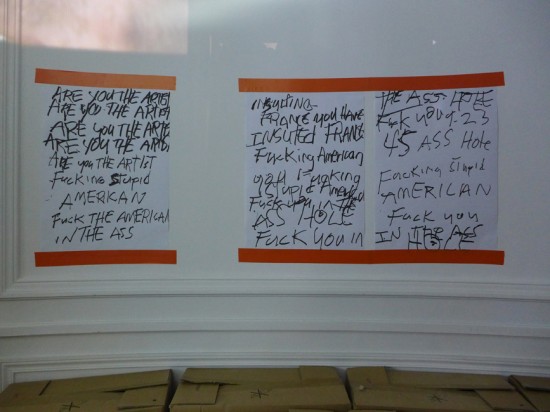 ARE YOU THE ARTIST
ARE YOU THE ARTIST
ARE YOU THE ARTIST
ARE YOU THE ARTIST
ARE YOU THE ARTIST
Fucking Stupid
AMERICAN
FUCK THE AMERICAN
IN THE ASS
INSULTING
FRANCE YOU HAVE
INSULTED FRANCE
Fucking American
you Fucking
Stupid
Fuck you in the
ASS HOLE
FUCK YOU IN
THE ASS HOLE
Fuck you 1.23
45 ASS Hole
Fucking Stupid
AMERICAN
Fuck you
IN THE ASS
HOLE